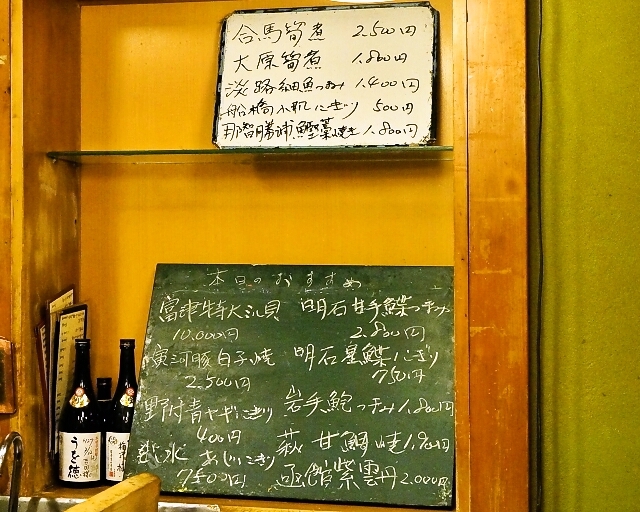 合馬筍煮 2,500円
大原筍煮 1,800円
淡路細魚つまみ 1,400円
船橋小肌にぎり 500円
那智勝浦鰹藁焼き 1,800円
本日のおすすめ
富津特大ミル貝
10,000円
寅河豚白子焼
2,500円
野付青ヤギにぎり
400円
あじにぎり
750円
明石甘手鰈つまみ
2,800円
明石星鰈にぎり
750円
岩手鮑つまみ 1,800円
萩 甘鯛焼 1,900円
函館紫雲丹 2,000円
うを徳